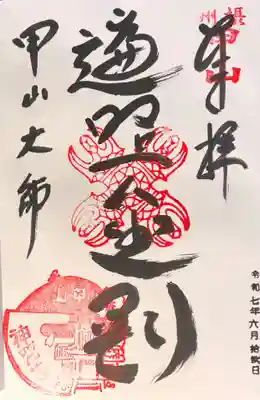 摂州
甲山
奉拝
遍照金剛
甲山大師
令和七年六月拾弐日